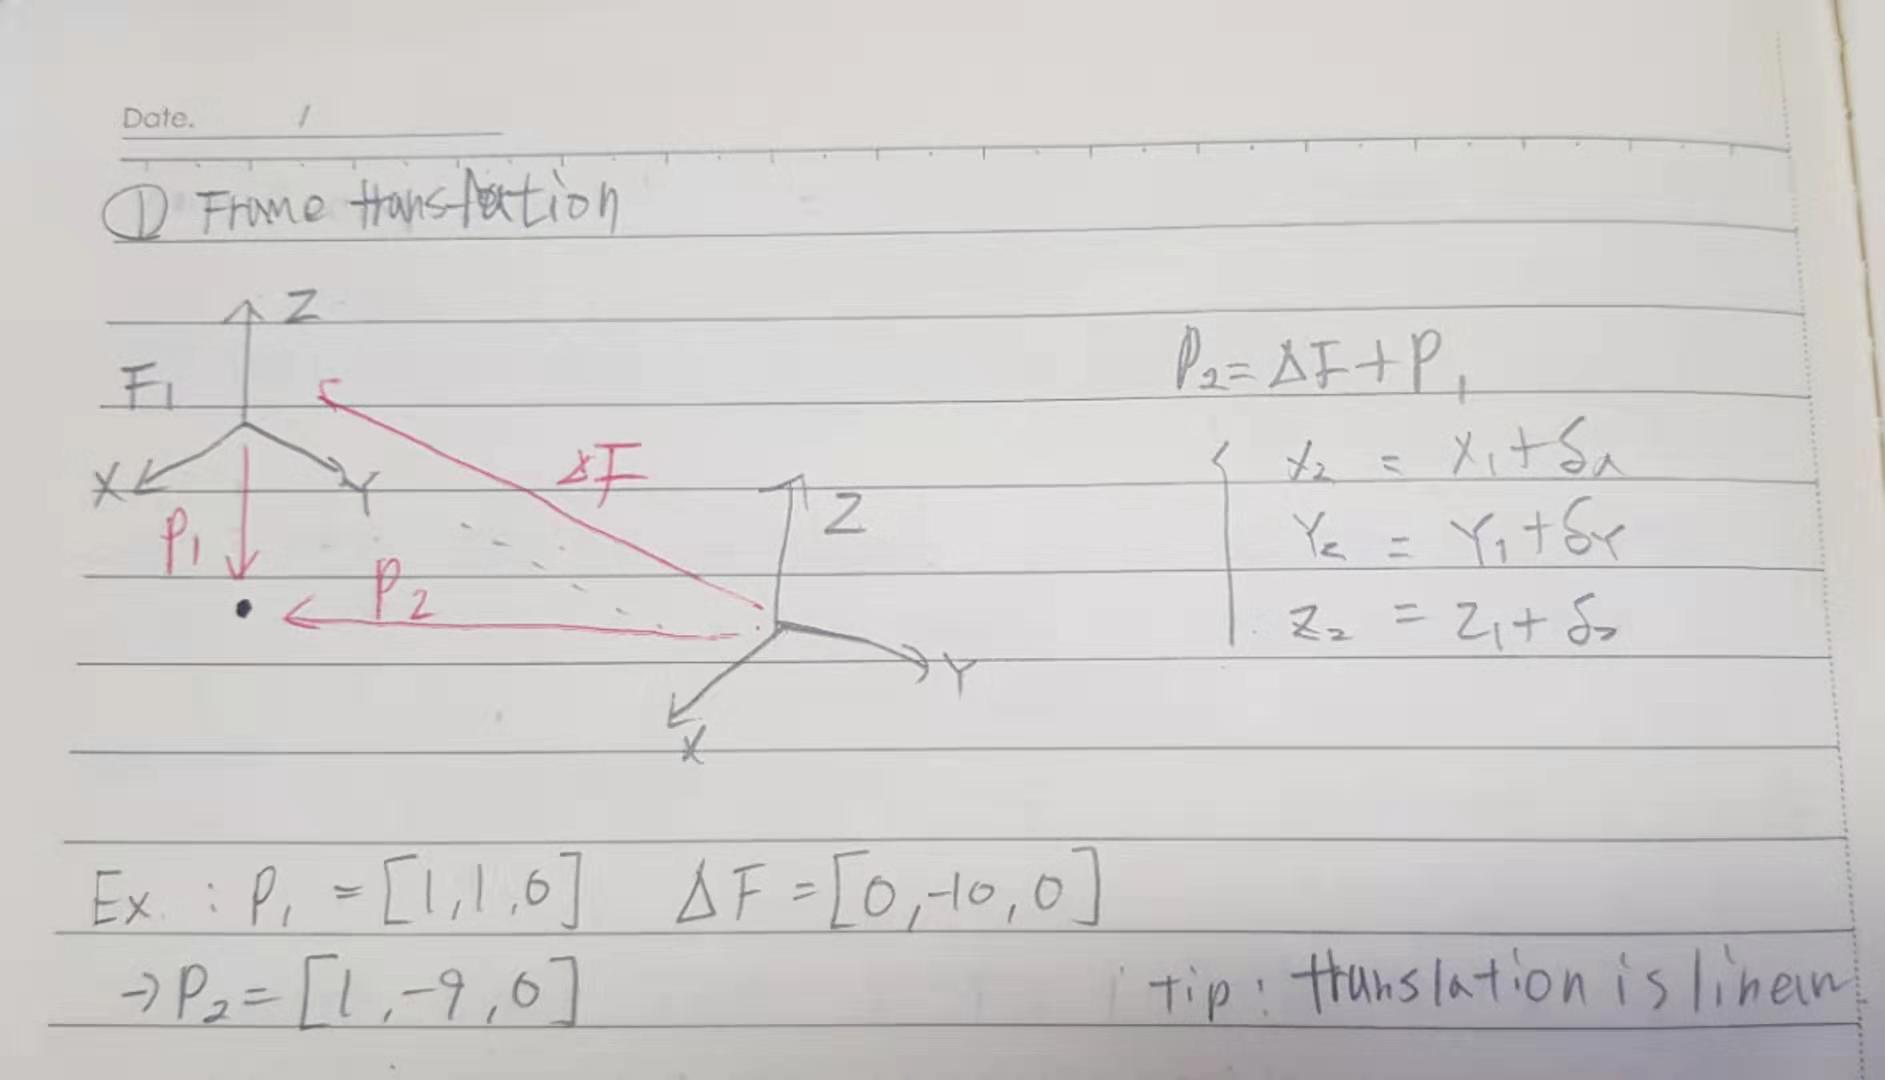 Date. /
① Frame translation
Z
F₁
X
Y
P₁
P₂
ΔF
Z
Y
X
P₂ = ΔF + P₁
X₂ = X₁ + δx
Y₂ = Y₁ + δY
Z₂ = Z₁ + δz
Ex. : P₁ = [1, 1, 0] ΔF = [0, -10, 0]
→ P₂ = [1, -9, 0]
Tip : translation is linear